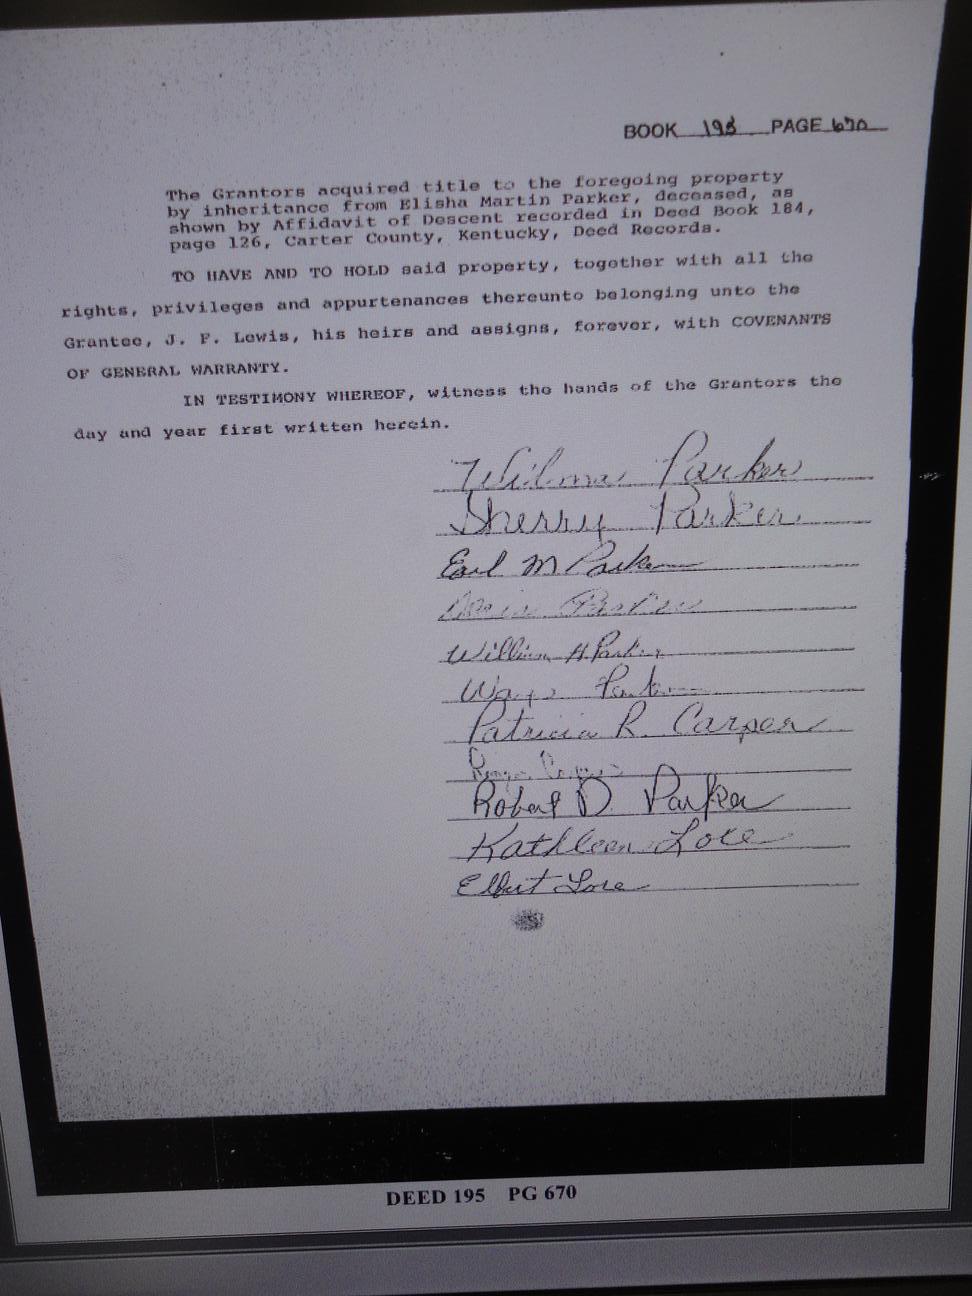 BOOK 195 PAGE 670
The Grantors acquired title to the foregoing property
by inheritance from Elisha Martin Parker, deceased, as
shown by Affidavit of Descent recorded in Deed Book 184,
page 126, Carter County, Kentucky, Deed Records.
TO HAVE AND TO HOLD said property, together with all the
rights, privileges and appurtenances thereunto belonging unto the
Grantee, J. F. Lewis, his heirs and assigns, forever, with COVENANTS
OF GENERAL WARRANTY.
IN TESTIMONY WHEREOF, witness the hands of the Grantors the
day and year first written herein.
Wilma Parker
Sherry Parker
Earl M Parker
Parker
William H. Parker
Wayne Parker
Patricia R. Carper
Robert D Parker
Kathleen Lore
Elbert Lore
DEED 195 PG 670